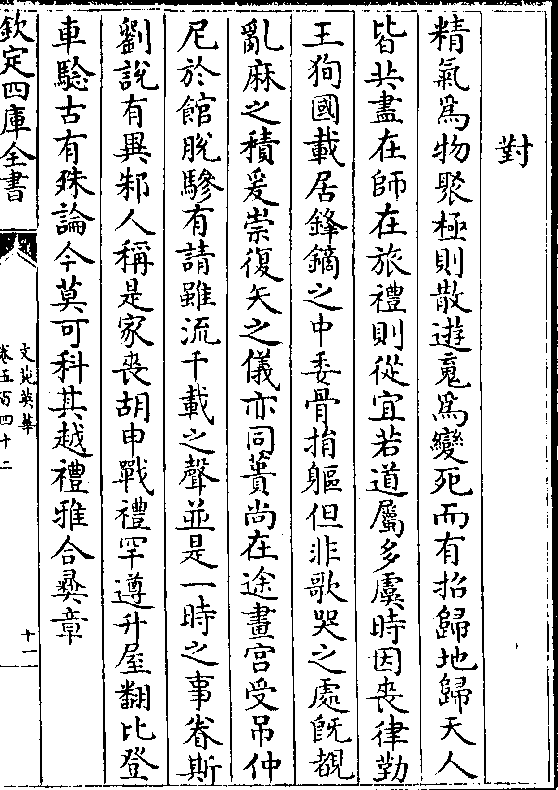 對
精氣爲物聚極則散遊䰟爲變死而有招歸地歸天人
皆共盡在師在旅禮則從宜若道屬多虞時因喪律勤
王狥國載居鋒鏑之中委骨捐軀但非歌哭之處旣覩
亂麻之積爰崇復矢之儀亦同蕢尚在途畫宫受吊仲
尼於館脫驂有請雖流千載之聲並是一時之事眷斯
劉說有異邾人稱是家喪胡申戰禮罕遵升屋翻比登
車騐古有殊論今莫可科其越禮雅合彛章
欽定四庫全書
文苑英華
卷五百四十二
十一